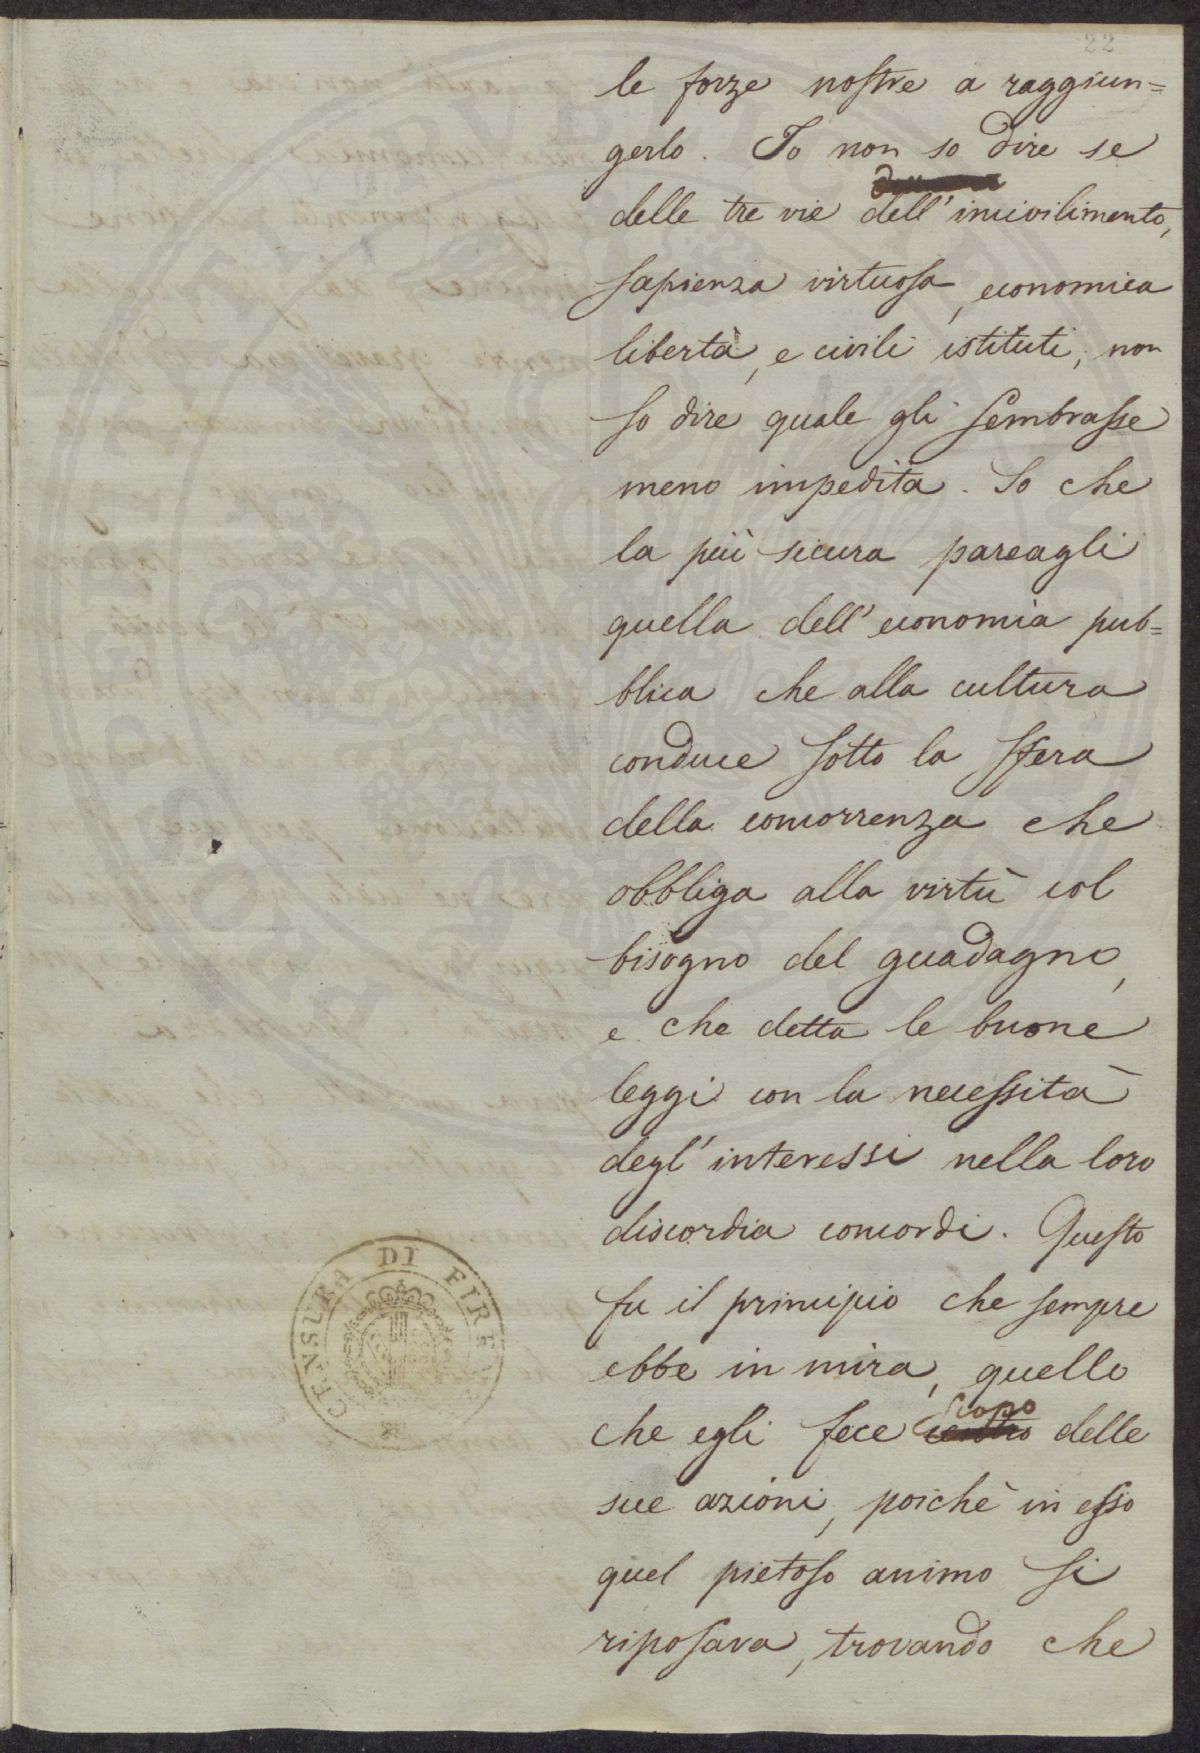 22
le forze nostre a raggiun=
gerlo. Io non so dire se
delle tre vie dell'incivilimento,
sapienza virtuosa, economica
libertà, e civili istituti, non
so dire quale gli sembrasse
meno impedita. So che
la più sicura pareagli
quella dell'economia pub=
blica che alla cultura
conduce sotto la sfera
della concorrenza che
obbliga alla virtù col
bisogno del guadagno,
e che detta le buone
leggi con la necessità
degl'interessi nella loro
discordia concordi. Questo
fu il principio che sempre
ebbe in mira, quello
che egli fece scopo delle
sue azioni, poichè in esso
quel pietoso animo si
riposava, trovando che
CENSURA DI FIRE